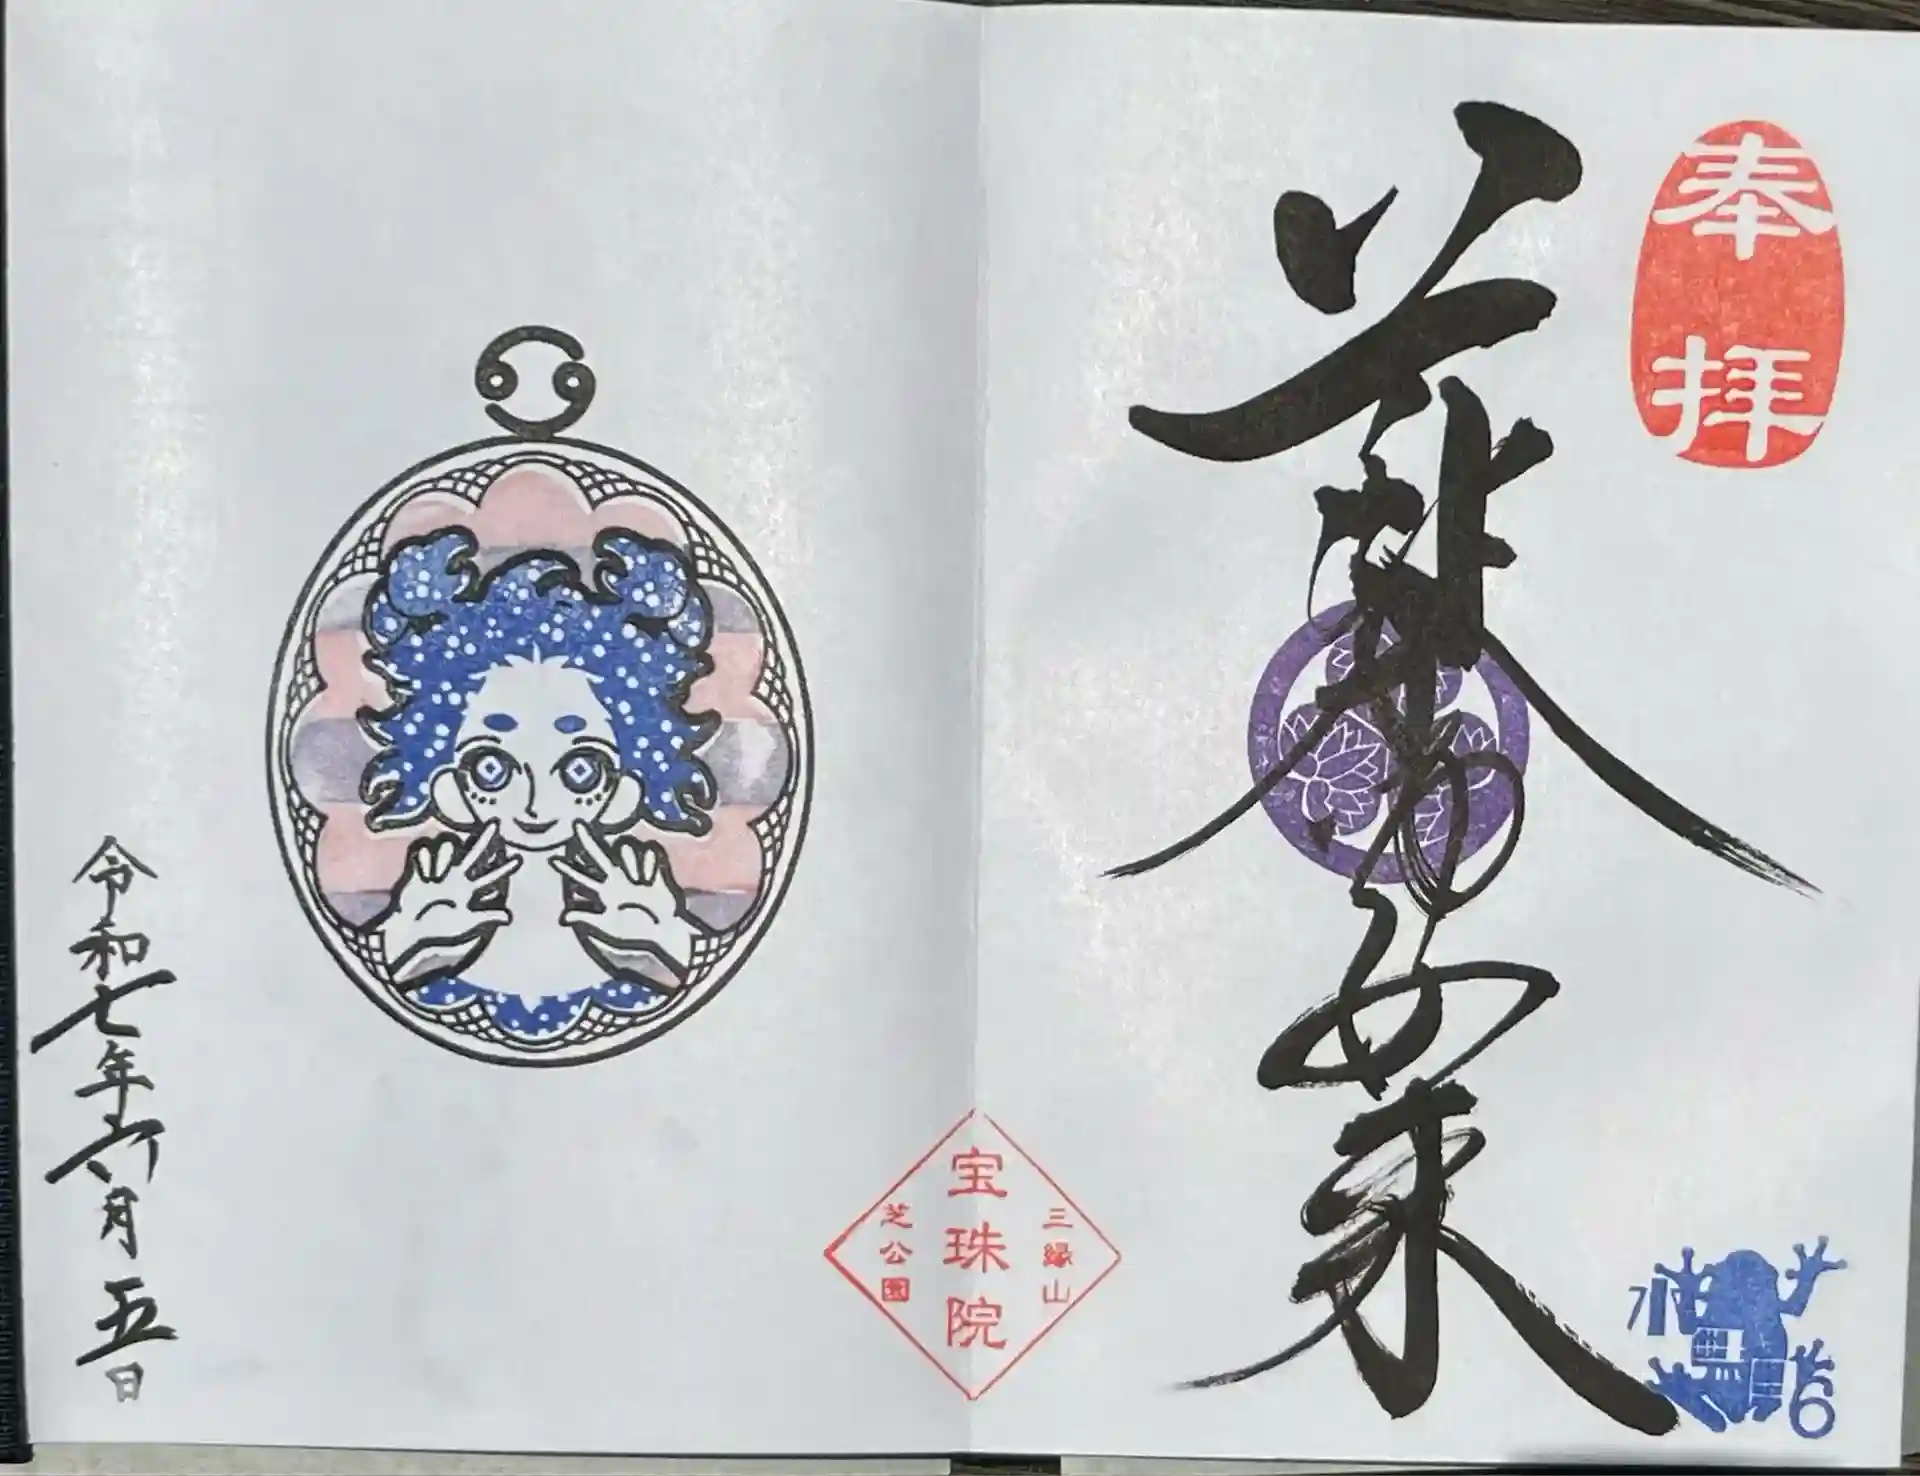 奉拝
薬師如来
三縁山
宝珠院
芝公園
令和七年六月五日